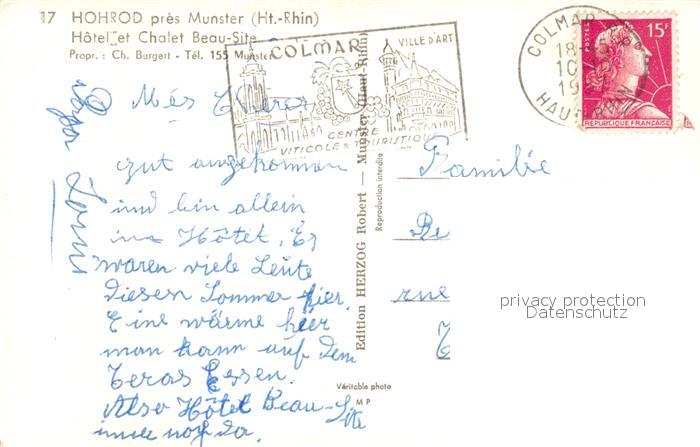 17 HOHROD près Munster (Ht.-Rhin)
Hôtel et Chalet Beau-Site
Propr. : Ch. Burgert - Tél. 155 Munster
COLMAR
VILLE D'ART
CENTRE
VITICOLE & TOURISTIQUE
COLMAR
18
10
19
HAUT-RHIN
POSTES
15F
REPUBLIQUE FRANÇAISE
Més
gut angekommen
und bin allein
ins Hôtel. Es
waren viele Leute
diesen Sommer hier.
Eine wärme hier
man kann auf dem
Teras Essen.
Also Hôtel Beau-Site
immer noch da.
Edition HERZOG Robert — Munster (Haut-Rhin)
Reproduction interdite
Véritable photo
M P
Familie
Re
rue
privacy protection
Datenschutz